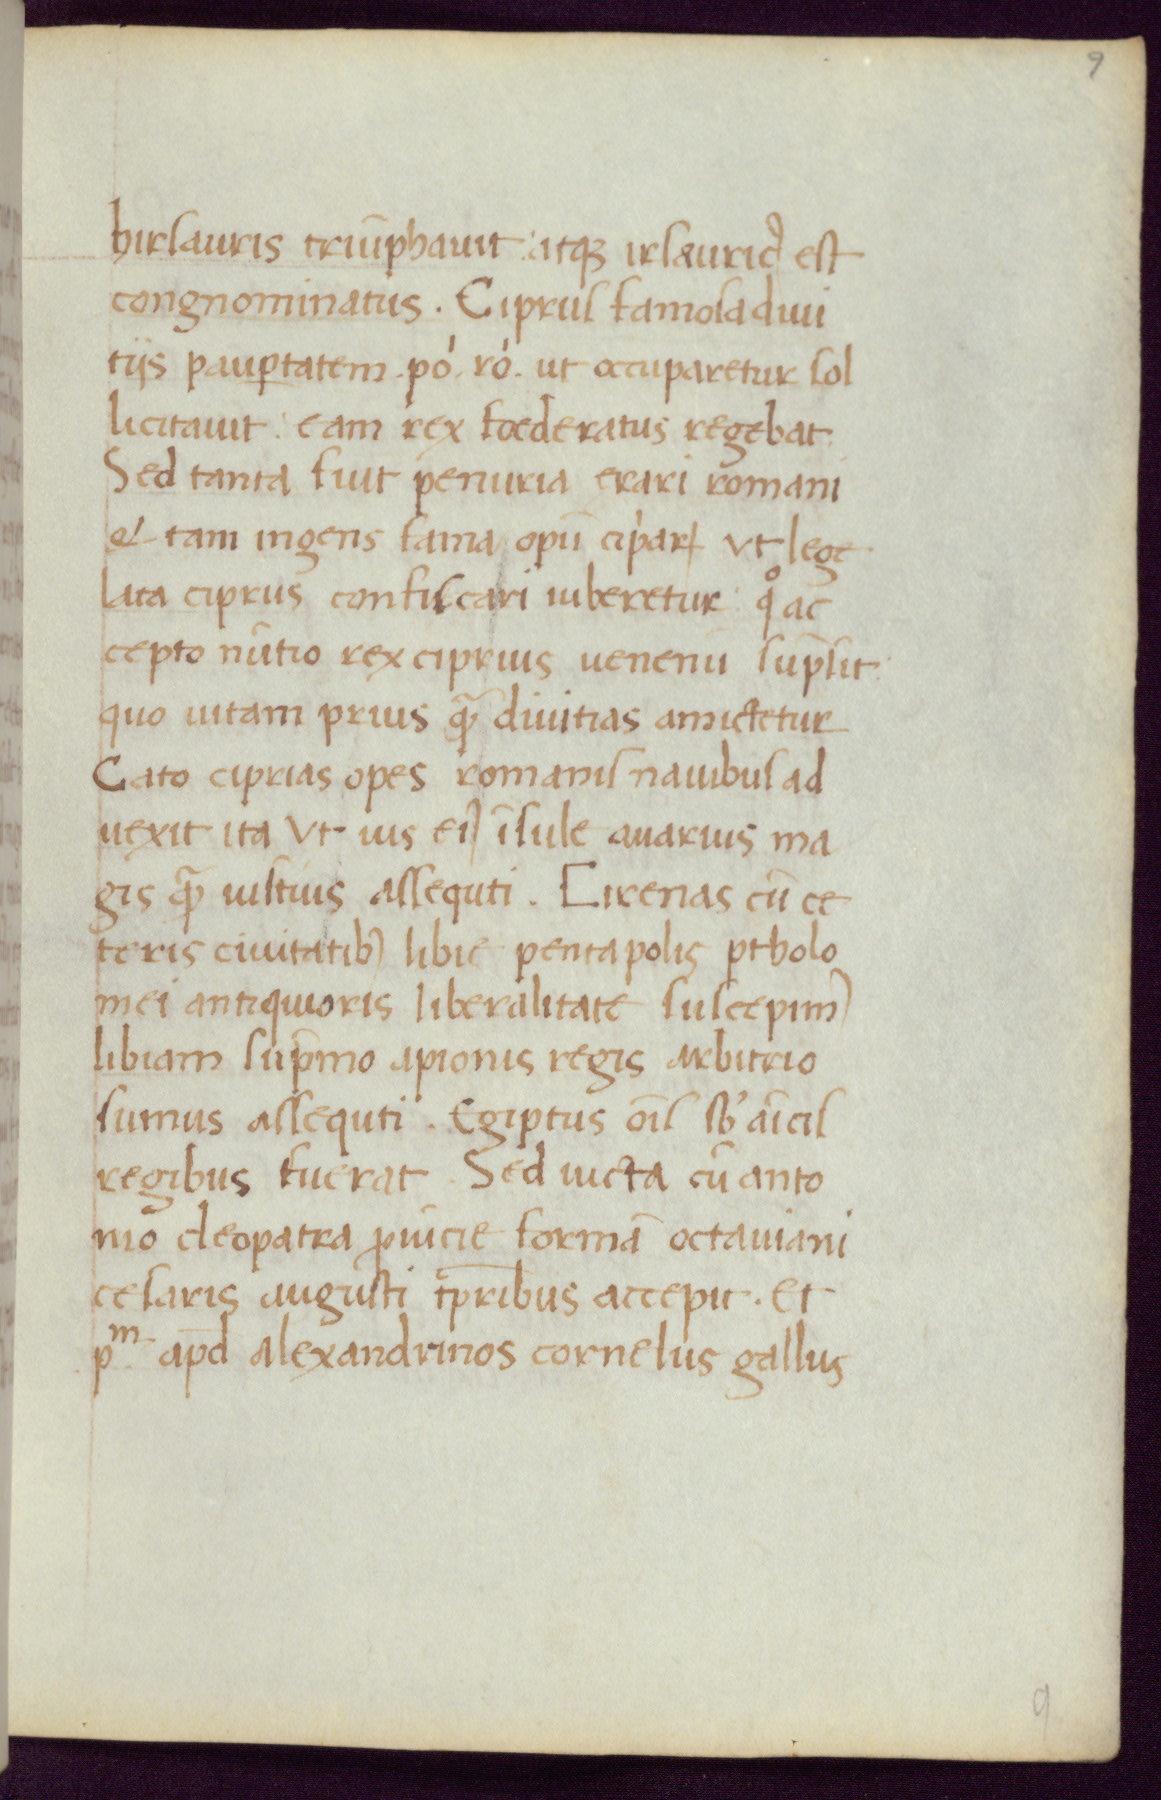 9
hirsauris triūphauit : atqꝫ irsauricꝰ est
congnominatus . Ciprus famosa diui
tijs paup̲tatem . pó . ró . ut occuparetur sol
licitauit : eam rex foederatus regebat
Sed tanta fuit penuria erari romani
& tam ingens fama opū ciparꝝ vt lege
lata ciprus confiscari iuberetur : qͦ ac
cepto nūtio rex ciprius uenenū sūpsit
quo uitam prius quā diuitias amictetur
Cato ciprias opes romanis nauibus ad
uexit ita vt ius eiꝰ īsule auarius ma
gis quā iustius assequti . Cirenas cū ce
teris ciuitatibꝰ libie pentapolis ptholo
mei antiquioris liberalitate suscepimꝰ
libiam sup̄mo apionis regis arbitrio
sumus assequti . Egiptus oīs sb' aīcis
regibus fuerat . Sed uicta cū anto
nio cleopatra ꝓuīcie formā octauiani
cesaris augusti tp̄ribus accepit . Et
pᵐ apd̄ alexandrinos cornelius gallus
9